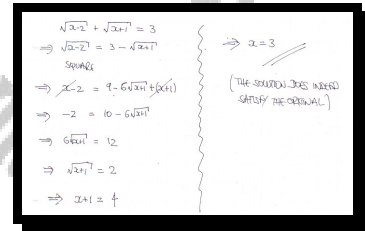 √x-2 + √x+1 = 3
⇒ √x-2 = 3 - √x+1
SQUARE
⇒ x-2 = 9-6√x+1 +(x+1)
⇒ -2 = 10-6√x+1
⇒ 6√x+1 = 12
⇒ √x+1 = 2
⇒ x+1 = 4
⇒ x=3
(THE SOLUTION DOES INDEED
SATISFY THE ORIGINAL)